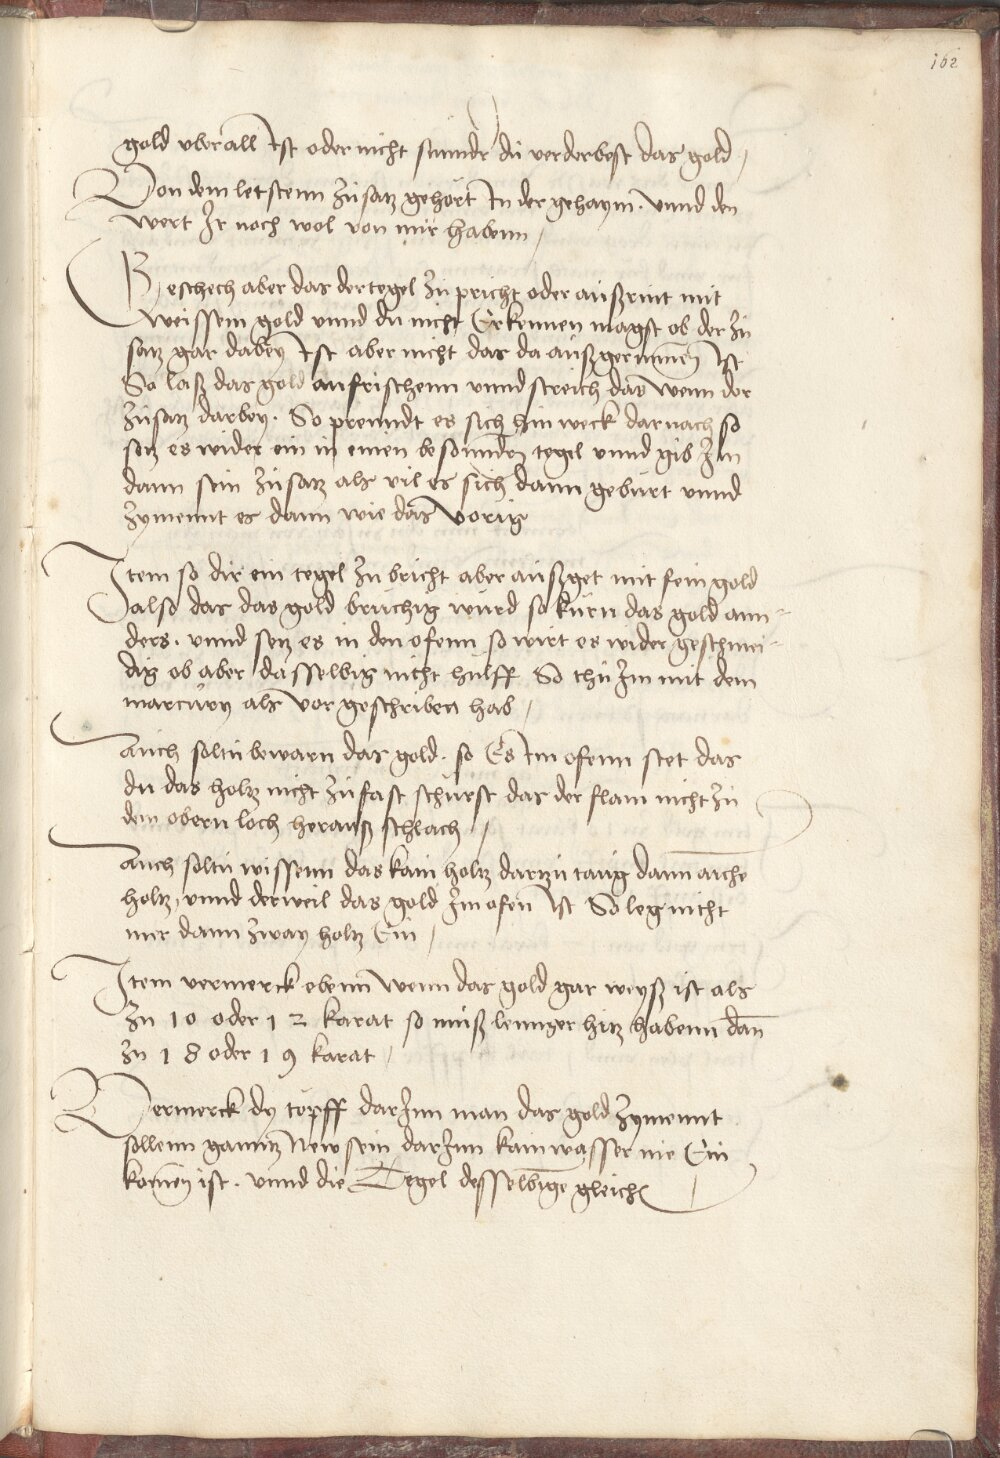 162
gold uberall Ist oder nicht sunndr du verderbest das gold /
Von dem letstenn Zusatz gehört In der gehaym. Vnnd den
wert Ir noch wol von mir habenn /
Beschech aber das der tegel Zu pricht oder außrint mit
weissem gold vnnd du nicht Erkennen magst ob der Zu
satz gar dabey Ist aber nicht das da außgerunnen Ist
So laß das gold anfrischenn vnnd streich das wenn der
Zusatz darbey. So prenndt es sich hinweck darnach so
setz es wider ein in einen besonndern tegel vnnd gib Im
dann sein Zusatz als vil es sich dann geburt vnnd
Zymennt es dann wie das vorig
Item so dir ein tegel Zu bricht aber außget mit fein gold
also das das gold brüchig würd so kürn das gold ann-
ders. vnnd setz es in den ofenn so wirt es wider geschmei-
dig ob aber dasselbig nicht hulff So thu Im mit dem
marcury als vor geschriben hab /
Auch soltu bewarn das gold. so Es Im ofenn stet das
du das holtz nicht Zu fast schürst das der flam nicht Zu
dem obern loch herauß schlach //
Auch soltu wissenn das kain holtz dartzu taug dann aiche
holtz, vnnd derweil das gold Im ofen Ist So leg nicht
mer dann Zway holtz Ein /
Item vermerck ebenn wenn das gold gar weyß ist als
Zu 10 oder 12 karat so muß lenger hitz habenn dan
Zu 18 oder 19 karat /
Vermerck dy töpff darInn man das gold Zymennt
sollenn ganntz New sein darInn kain wasser nie Ein
komen ist. vnnd die Tegel desselbigen gleich /